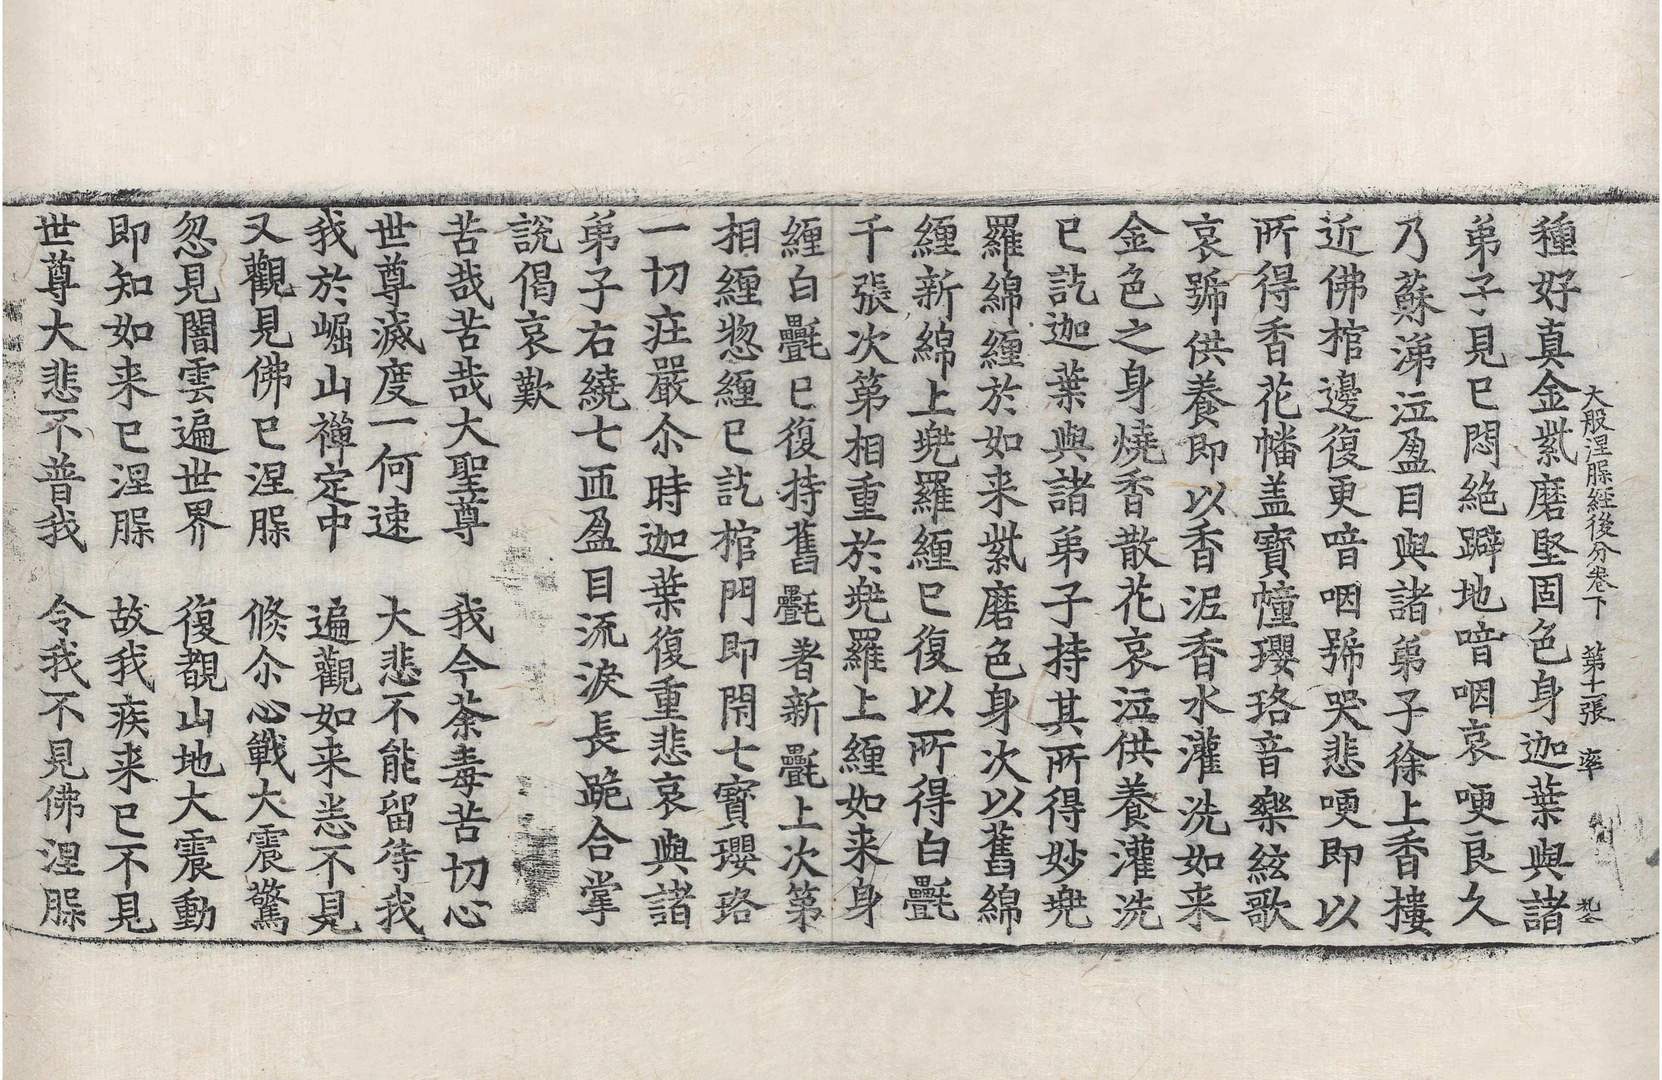 大般涅槃經後分卷下　第十一張　率
種好真金紫磨堅固色身迦葉與諸
弟子見已悶絕躃地喑咽哀哽良久
乃蘇涕泣盈目與諸弟子徐上香樓
近佛棺邊復更喑咽號哭悲哽即以
所得香花幡盖寶幢瓔珞音樂絃歌
哀號供養即以香泥香水灌洗如来
金色之身燒香散花哀泣供養灌洗
已訖迦葉與諸弟子持其所得妙兠
羅綿纏於如来紫磨色身次以舊綿
纏新綿上兠羅纏已復以所得白㲲
千張次第相重於兠羅上纏如来身
纏白㲲已復持舊㲲著新㲲上次第
相纏惣纏已訖棺門即閇七寶瓔珞
一切疘嚴尒時迦葉復重悲哀與諸
弟子右繞七匝盈目流淚長跪合掌
說偈哀歎
苦哉苦哉大聖尊　我今荼毒苦切心
世尊滅度一何速　大悲不能留待我
我於崛山禪定中　遍觀如来悉不見
又觀見佛已涅槃　倏尒心戰大震驚
忽見闇雲遍世界　復覩山地大震動
即知如来已涅槃　故我疾来已不見
世尊大悲不普我　令我不見佛涅槃